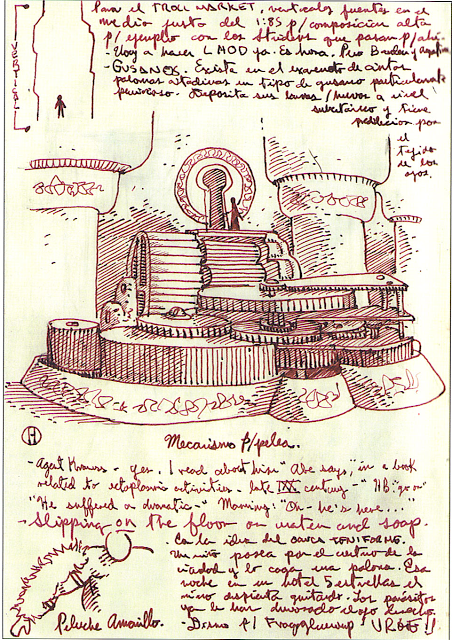 Para el TROLL MARKET, verticales fuentes en el
medio justo del 1:85 p/composición alta
p/ ejemplo con los Studios que pasan p/ahí.
Voy a hacer LMOD ya. Es hora. Pero
VERTICAL
- GUSANOS. Existe en el excremento de ciertas
palomas citadinas un tipo de gusano particularmente
pernicioso. Deposita sus larvas/huevos a nivel
subcutáneo y tiene
predilección por
el
tejido
de los
ojos.
H
Mecanismo p/pelea.
- Agent Krauss - yes. I read about him "Abe says," in a book
related to ectoplasmic activities. late IXX century - "HB: "go on"
"He suffered a dramatic -" Manning: "Oh - he's here..."
- Slipping on the floor on water and soap.
- Con la idea del
Un niño posea por el cuerno de la
y lo caga una paloma. Esa
noche en un hotel 5 estrellas el
niño despierta gritando. Los parásitos
ya le han devorado el ojo derecho.
Peluche Amarillo.
URGE!!